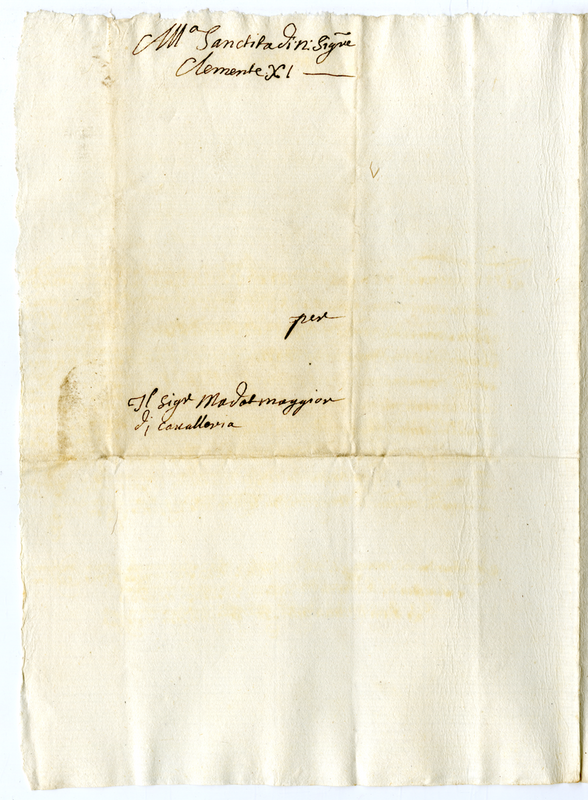 All.a Sanctita di N: Sig.re
Clemente XI
per
Il Sig.r Mad maggior
di Cavalleria